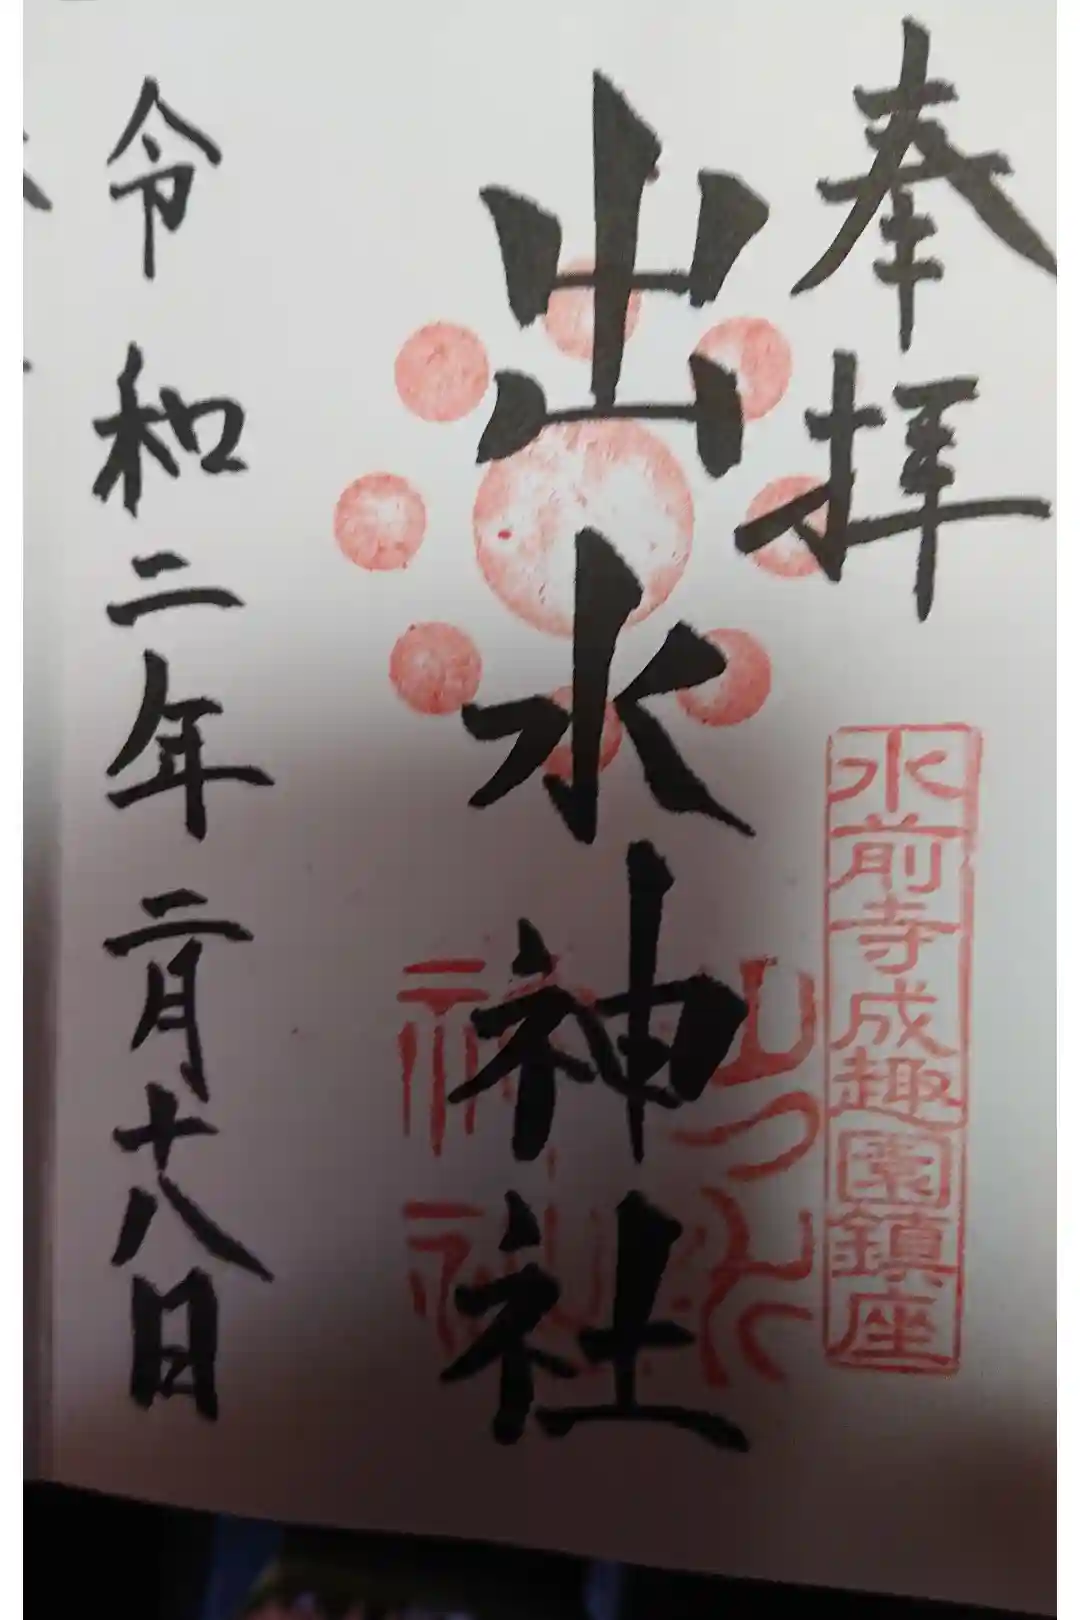 奉拝
水前寺成趣園鎮座
出水神社
出水神社
令和二年二月十八日